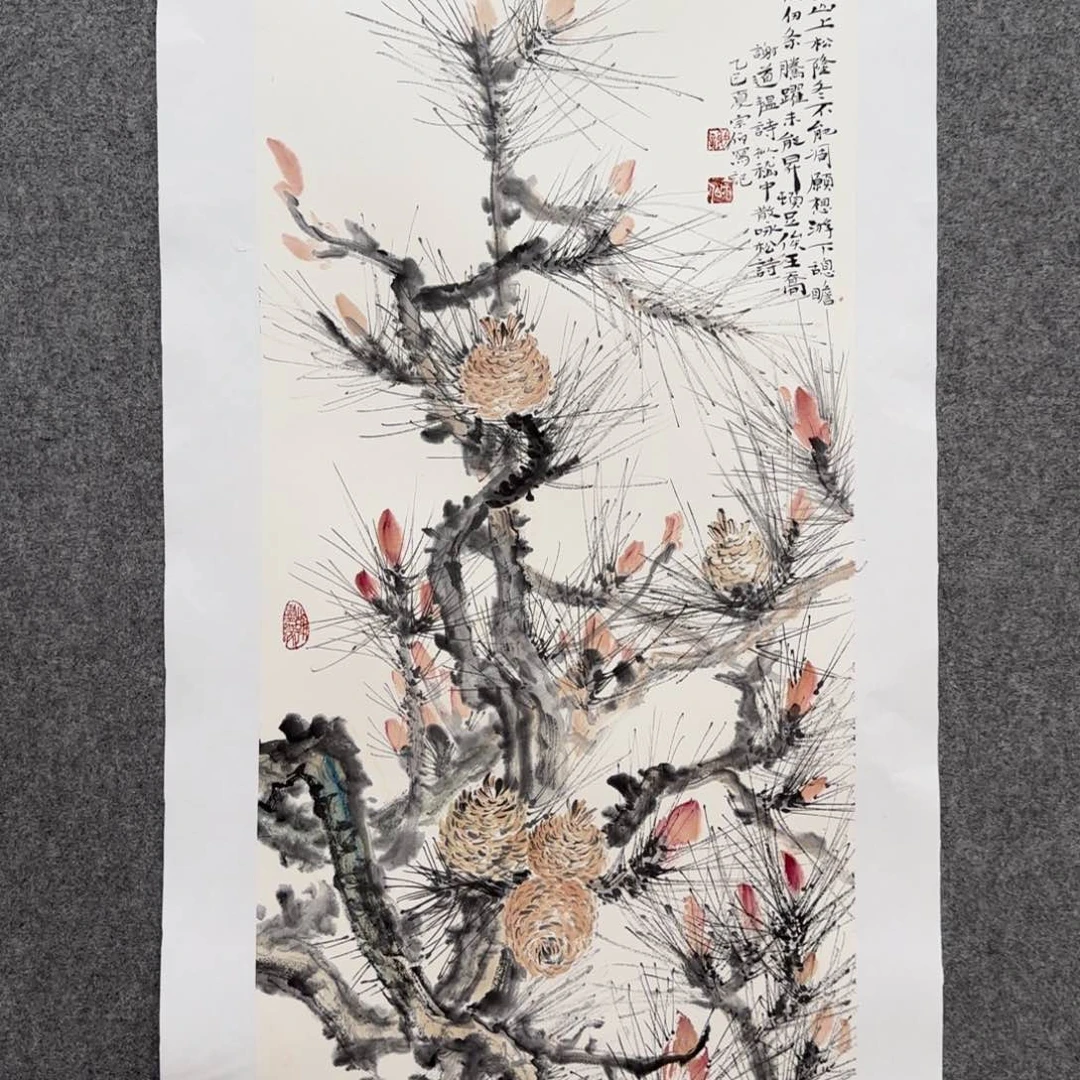 山上松隆冬不能凋願想游下憩瞻
仞条騰躍未能昇頓足俟王喬
謝道韞詩拟嵇中散咏松詩
乙巳夏宗寫記